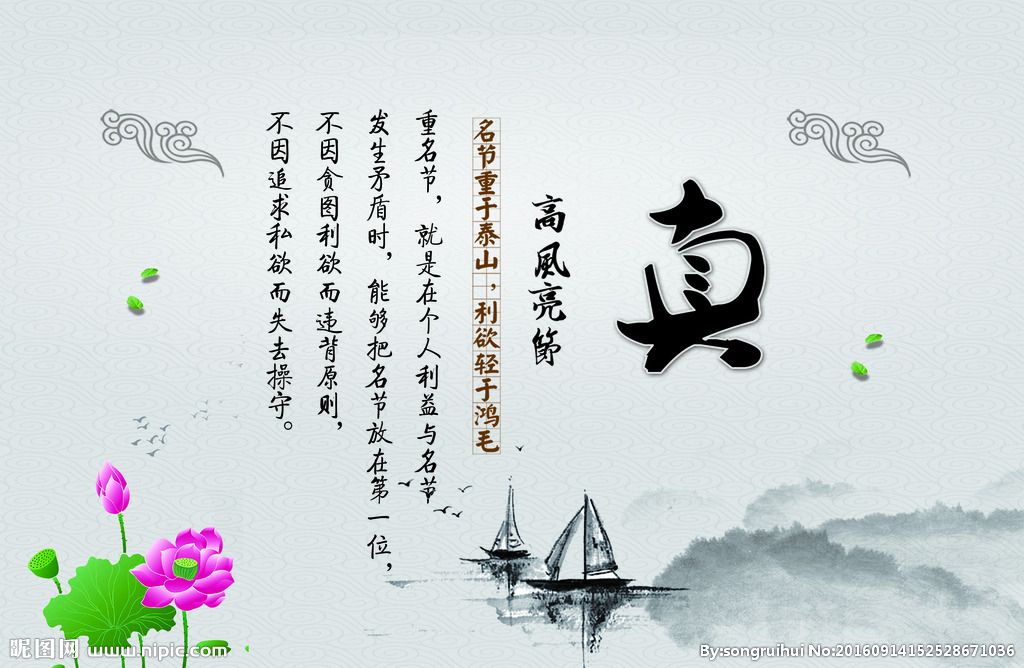 真
高風亮節
名节重于泰山，利欲轻于鸿毛
重名节，就是在个人利益与名节
发生矛盾时，能够把名节放在第一位，
不因贪图利欲而违背原则，
不因追求私欲而失去操守。
昵图网 www.nipic.com
By:songruihui No:20160914152528671036